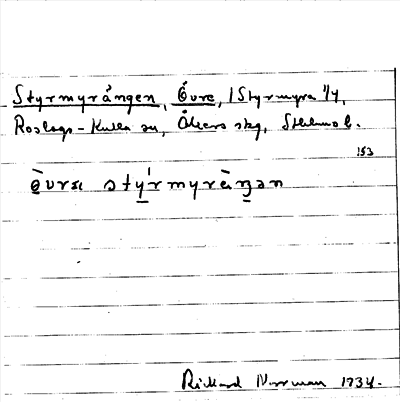 Styrmyrängen, Övre, /Styrmyra 1/4,
Roslags-Kulla sn, Åkers skg, Sthlms l.
153
Rickard Norrman 1934.